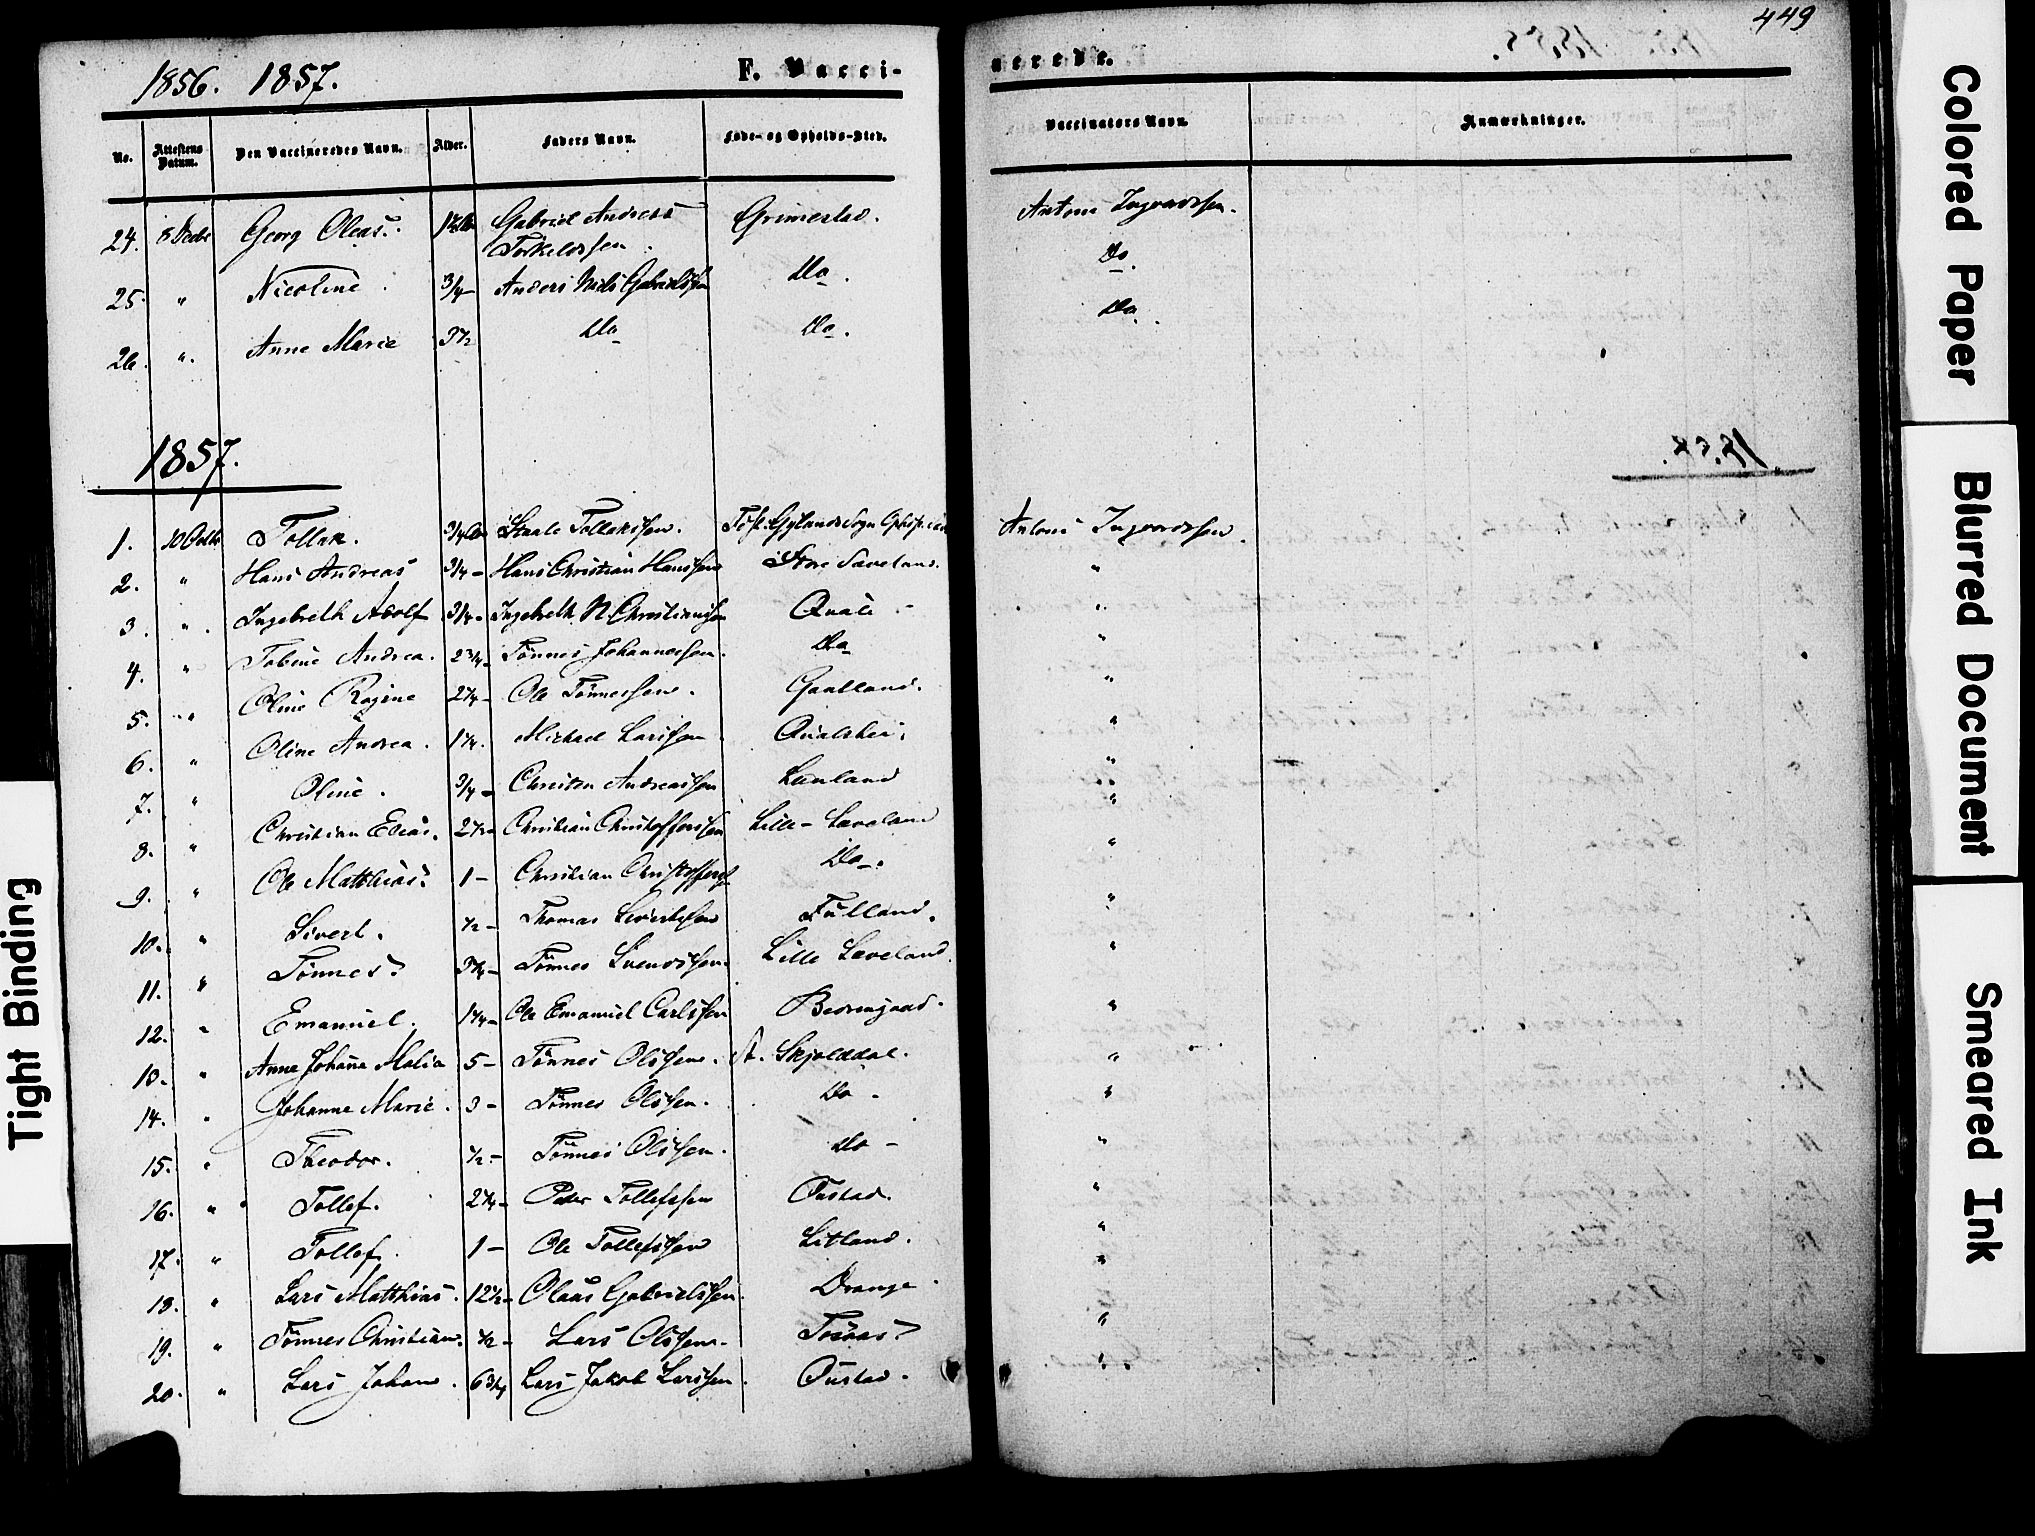 449
1856. 1857.
F. Vacci-
nerede.
No. Attestens Datum. Den Vaccineredes Navn. Alder. Faders Navn. Føde- og Opholds-Sted. Vaccinators Navn. Anmærkninger.
24. 8 Decbr Georg Oleas. Gabriel Andreas Torkeldssen Grimestad. Antoni Ingvordssen.
25. " Nicoline 3/4 - Anders Nicolai Gabrielssen Do. Do.
26. " Anne Marie 3 1/2 Do Do. Do.
1857.
1. 10 Octbr Tollak. 3/4 Staale Tollakssen. Gylands Sogn Antoni Ingvordssen.
2. " Hans Andreas 3/4 - Hans Christian Hanssen Store Laveland. "
3. " Ingebreth Adolf 3/4 - Ingebreth N. Christianssen Qvale - "
4. " Tobine Andrea. 2 3/4 - Tønnes Johannessen. Do "
5. " Oline Regine 2 1/4 - Ole Tønnessen. "
6. " Oline Andrea. 1 1/4. Michael Larssen Qvalshei. "
7. " Oline. 3/4 - Christen Andreassen "
8. " Christian Elias. 2 1/2 - Christian Christofferssen Lille - Laveland "
9. " Ole Matthias. 1 - Christian Christofferss. Do. "
10. " Sivert. 1/2 - Thomas Sivertssen Fulland. "
11. " Tønnes. Tønnes Svendssen. Lille Laveland. "
12. " Emanuel. 1 1/4 - Ole Emanuel Carlssen "
13. " Anne Johane Malia 5 - Tønnes Olssen. St. Skjolddal. "
14. " Johanne Marie. 3 - Tønnes Olssen. Do - "
15. " Theodor. 1/2 - Tønnes Olssen. Do - "
16. " Tollef. 2 1/4 - Peder Tollefssen Øustad. "
17. " Tollef. 1 - Ole Tollefssen Litland. "
18. " Lars Matthias. 12 1/2 - Olaus Gabrielssen. Drange "
19. " Tønnes Christian. 1/2 - Lars Olssen. "
20. " Lars Johan. 6 3/4 Lars Jakob Larssen. Øustad. "
Colored Paper
Blurred Document
Smeared Ink
Tight Binding